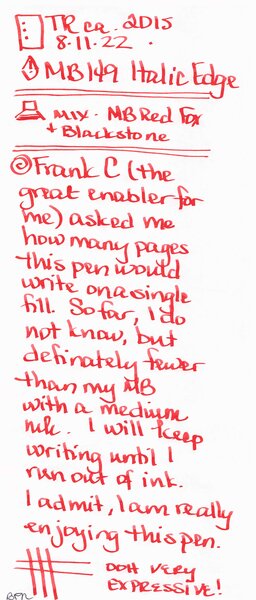 TR ca. 2015
8.11.22.
MB149 Italic Edge
mix. MB Red Fox
+ Blackstone
Frank C (the
great enabler for
me) asked me
how many pages
this pen would
write on a single
fill. So far, I do
not know, but
definately fewer
than my MB
with a medium
nib. I will keep
writing until I
run out of ink.
I admit, I am really
enjoying this pen.
OOH VERY
EXPRESSIVE!